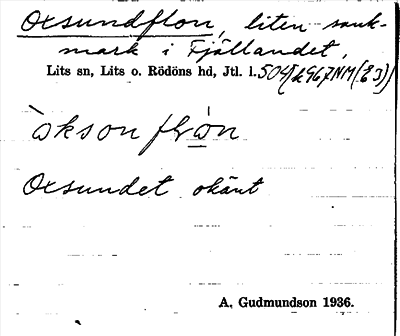 Oxsundflon, liten sank-
mark i Fjällandet,
Lits sn, Lits o. Rödöns hd, Jtl. l.
òksonflòn
Oxsundet okänt
A. Gudmundson 1936.